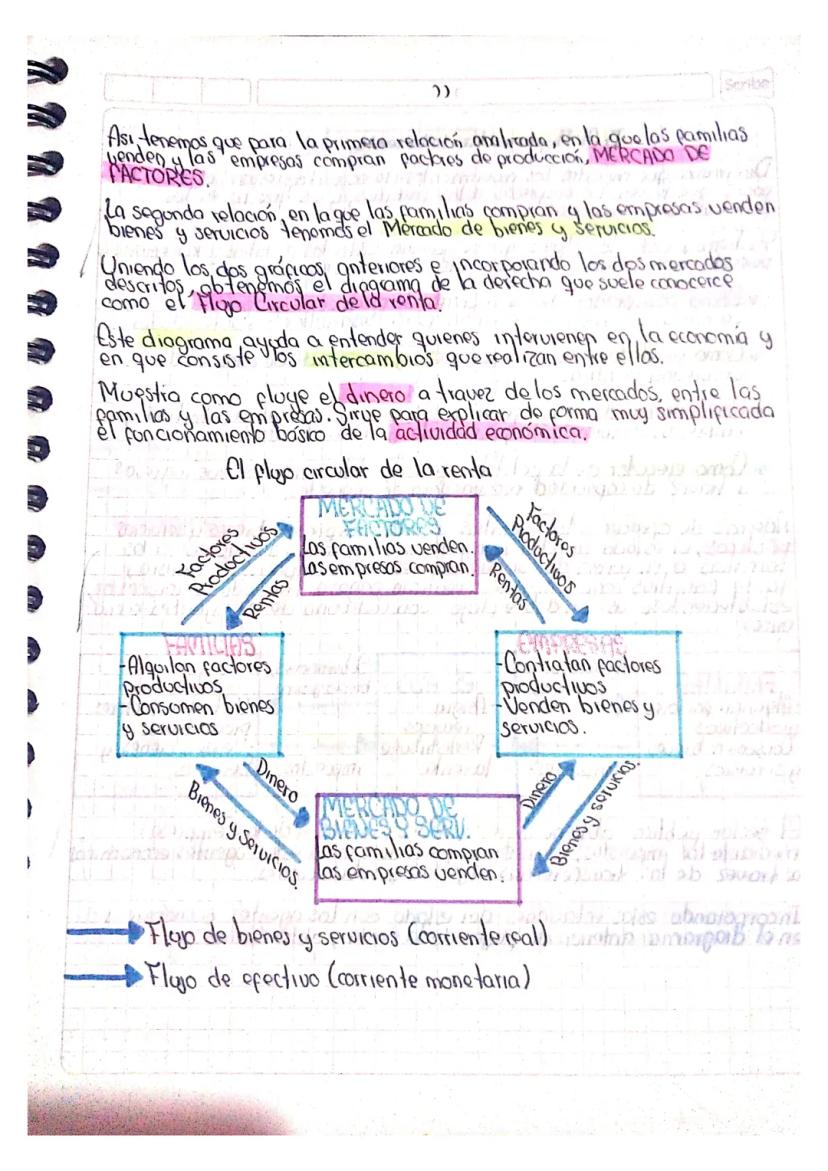 ))
Scribe
Asi, tenemos que para la primera relación analizada, en la que las familias
venden y las empresas compran factores de producción, MERCADO DE
FACTORES.
La segunda relación, en la que las familias compran y las empresas venden
bienes y servicios tenemos el Mercado de bienes y servicios.
Uniendo los dos gráficos anteriores e incorporando los dos mercados
descritos, obtenemos el diagrama de la derecha que suele conocerce
como el Flujo Circular de la renta.
Este diagrama ayuda a entender quienes intervienen en la economía y
en que consiste los intercambios que realizan entre ellos.
Muestra como fluye el dinero a travez de los mercados, entre las
familias y las empresas. Sirve para explicar de forma muy simplificada
el funcionamiento básico de la actividad económica.
El flujo circular de la renta
MERCADO DE
FACTORES
Las familias venden.
Las empresas compran
Factores
Productivos
Rentas
Factores
Productivos
Rentas
FAMILIAS
-Alquilan factores
productivos
-Consumen bienes
y servicios
EMPRESAS
-Contratan factores
productivos
-Venden bienes y
servicios.
Dinero
Bienes y servicios
Dinero
Bienes y servicios
MERCADO DE
BIENES Y SERV.
Las familias compran
Las empresas venden.
Flujo de bienes y servicios (corriente real)
Flujo de efectivo (corriente monetaria)